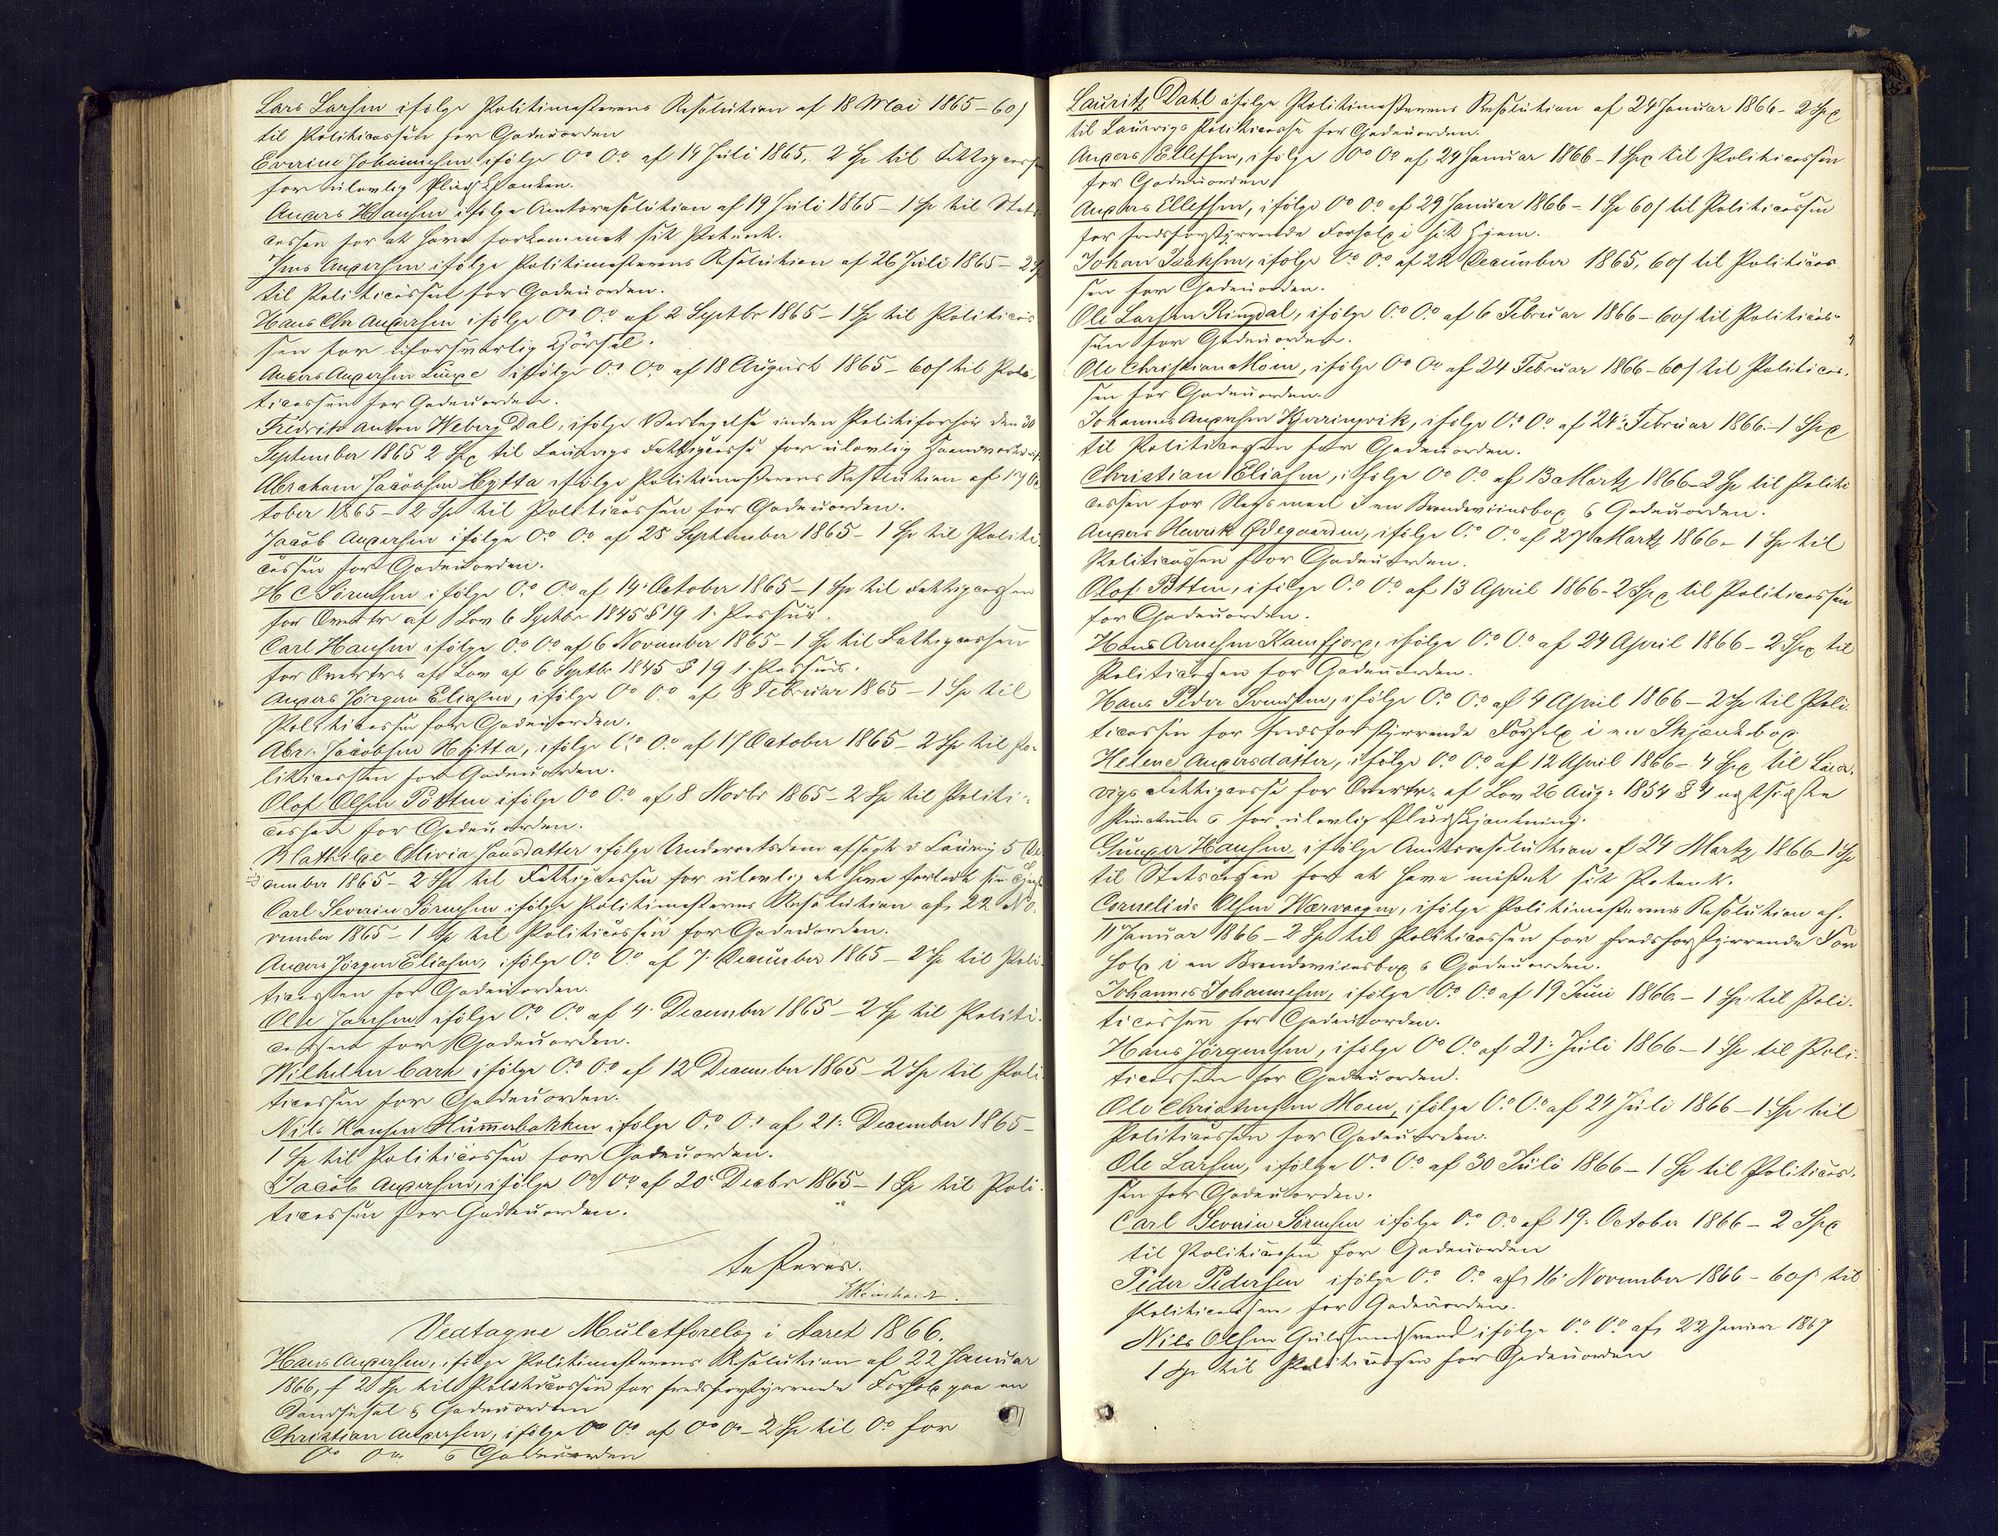 Lars Larsen ifølge Politimesterens Resolution af 18 Mai 1865 – 60 s
til Politicassen for Gadeuorden
Everine Johannesen ifølge Oo Oo af 14 Juli 1865, 2 Sp til Fattigcassen
for ulovlig
Anders Hansen ifølge Amtsresolution af 19 Juli 1865 – 1 Sp til Stats-
cassen for at have forkommet sit Patent.
Jens Andersen ifølge Politimesterens Resolution af 26 Juli 1865 – 2 Sp
til Politicassen for Gadeuorden.
Hans Chr Andersen ifølge Oo Oo af 2 Septbr 1865 – 1 Sp til Politicas
sen for uforsvarlig Kjørsel.
Anders Andersen Lunde ifølge Oo Oo af 18 August 1865 – 60 s til Poli-
ticassen for Gadeuorden.
Fredrik Anton Weberg Dal, ifølge Vedtagelse inden Politiforhør den 30
September 1865 2 Spd til Laurvigs Fattigcasse for ulovlig
Abraham Jacobsen Hytta ifølge Politimesterens Resolution af 17 Oc
tober 1865 – 2 Sp til Politicassen for Gadeuorden.
Jacob Andersen ifølge Oo Oo af 25 September 1865 – 1 Sp til Politi-
cassen for Gadeuorden.
H C Sørensen ifølge Oo Oo af 14 October 1865 – 1 Sp til Fattigcassen
for Overtr af Lov 6 Septbr 1845 § 19 1. Passus.
Carl Hansen ifølge Oo Oo af 6 November 1865 – 1 Sp til Fattigcassen
for Overtr. af Lov af 6 Septbr 1845 § 19 1. Passus.
Anders Jørgen Eliasen, ifølge Oo Oo af 8 Februar 1865 – 1 Sp til
Politicassen for Gadeuorden.
Abr. Jacobsen Hytta, ifølge Oo Oo af 17 October 1865 – 2 Sp til Po-
liticassen for Gadeuorden.
Olof Olsen Potten ifølge Oo Oo af 8 Novbr 1865 – 2 Sp til Politi-
cassen for Gadeuorden.
Mathilde Olivia Hansdatter ifølge Underretsdom afsagt i Laurvig 5 De
cember 1865 – 2 Sp til Fattigcassen for ulovlig at have forladt sin
Carl Severin Sørensen ifølge Politimesterens Resolution af 22 No
vember 1865 – 1 Sp til Politicassen for Gadeuorden.
Anders Jørgen Eliasen, ifølge Oo Oo af 7 December 1865 – 2 Sp til Poli-
ticassen for Gadeuorden.
Ole Jansen ifølge Oo Oo af 4. December 1865 – 2 Sp til Politi-
cassen for Gadeuorden.
Wilhelm Cark ifølge Oo Oo af 12 December 1865 – 2 Sp til Poli-
ticassen for Gadeuorden.
Nils Hansen Hummerbakken ifølge Oo Oo af 21. December 1865 –
1 Sp til Politicassen for Gadeuorden.
Jacob Andersen, ifølge Oo Oo af 20 Decbr 1865 – 1 Sp til Poli-
ticassen for Gadeuorden.
testeres.
Vedtagne Mulctforelæg i Aaret 1866.
Hans Andersen, ifølge Politimesterens Resolution af 22 Januar
1866, f 2 Sp til Politicassen for fredsforstyrrende Forhold paa en
Dandsesal & Gadeuorden
Christian Andersen, ifølge Oo Oo af Oo Oo – 2 Sp til Oo for
Oo Oo & Gadeuorden
Lauritz Dahl ifølge Politimesterens Resolution af 24 Januar 1866 – 2 Spd
til Laurvigs Politicasse for Gadeuorden.
Anders Ellefsen, ifølge Oo Oo af 24 Januar 1866 – 1 Spd til Politicassen
for Gadeuorden
Anders Ellefsen, ifølge Oo Oo af 29 Januar 1866 – 1 Sp 60 s til Politicassen
for fredsforstyrrende Forhold i sit Hjem.
Johan Isaksen, ifølge Oo Oo af 22 December 1865, 60 s til Politicas
sen for Gadeuorden.
Ole Larsen Ringdal, ifølge Oo Oo af 6 Februar 1866 – 60 s til Politicas-
sen for Gadeuorden.
Ole Christian Moen, ifølge Oo Oo af 24 Februar 1866 – 60 s til Politicas-
sen for Gadeuorden.
Johannes Andersen Kjerringvik, ifølge Oo Oo af 24. Februar 1866 – 1 Spd
til Politicassen for Gadeuorden.
Christian Eliasen, ifølge Oo Oo af 13 Martz 1866 – 2 Sp til Politi
cassen for Slagsmaal i en Brændeviinsbod & Gadeuorden.
Anders Henrik Ødegaarden, ifølge Oo Oo af 27 Martz 1866 – 1 Sp til
Politicassen for Gadeuorden.
Olof Potten, ifølge Oo Oo af 13 April 1866 – 2 Spd til Politicassen
for Gadeuorden.
Hans Arnesen Kamfjord, ifølge Oo Oo af 24 April 1866 – 2 Spd til
Politicassen for Gadeuorden.
Hans Peder Svendsen, ifølge Oo Oo af 4 April 1866 – 2 Sp til Poli-
ticassen for fredsforstyrrende Forhold i en Skjænkebod.
Helene Andersdatter, ifølge Oo Oo af 12 April 1866 – 4 Spd til Laur-
vigs Fattigcasse for Overtr. af Lov 26 Aug: 1854 § 4 næstsidste
Punctum & for ulovlig
Gunder Hansen, ifølge Amtsresolution af 24 Martz 1866 – 1 Sp
til Statscassen for at have mistet sit Patent.
Cornelius Olsen Wærvaagen, ifølge Politimesterens Resolution af
11 Januar 1866 – 2 Sp til Politicassen for fredsforstyrrende For
hold i en Brændeviinsbod & Gadeuorden.
Johannes Johannesen, ifølge Oo Oo af 19 Juni 1866 – 1 Sp til Poli-
ticassen for Gadeuorden.
Hans Jørgensen, ifølge Oo Oo af 21. Juli 1866 – 1 Sp til Poli-
ticassen for Gadeuorden.
Ole Christensen Moen, ifølge Oo Oo af 24 Juli 1866 – 1 Sp til
Politicassen for Gadeuorden.
Ole Larsen, ifølge Oo Oo af 30 Juli 1866 – 1 Sp til Politicas-
sen for Gadeuorden.
Carl Severin Sørensen ifølge Oo Oo af 19. October 1866 – 2 Spd
til Politicassen for Gadeuorden
Peder Pedersen ifølge Oo Oo af 16 November 1866 – 60 s til
Politicassen for Gadeuorden.
Nils Olsen ifølge Oo Oo af 22 Januar 1867
1 Sp til Politicassen for Gadeuorden